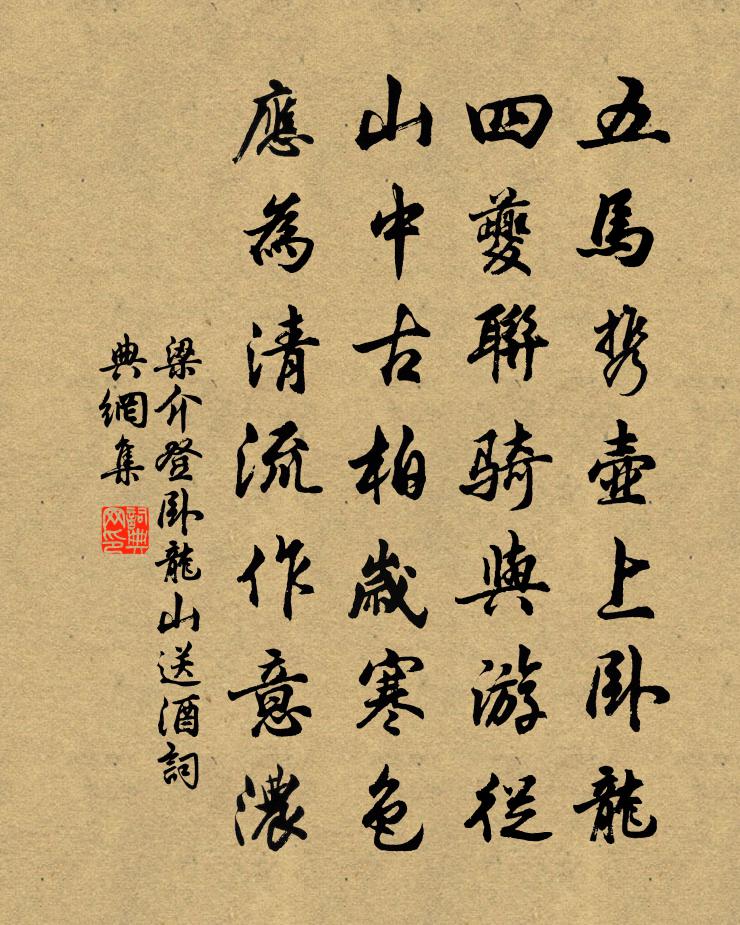 五馬携壺上卧龍
四夔聯騎與游從
山中古柏歲寒色
應為清流作意濃
梁介登卧龍山送酒詞
典網集
詞典
网印